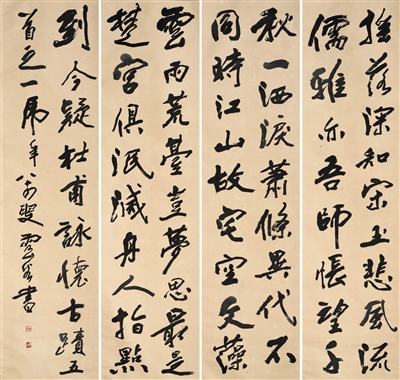 搖落深知宋玉悲風流
儒雅亦吾師悵望千
秋一洒淚蕭條異代不
同時江山故宅空文藻
雲雨荒臺豈夢思最是
楚宮俱泯滅舟人指點
到今疑杜甫詠懷古蹟五
首之一虎年叟書